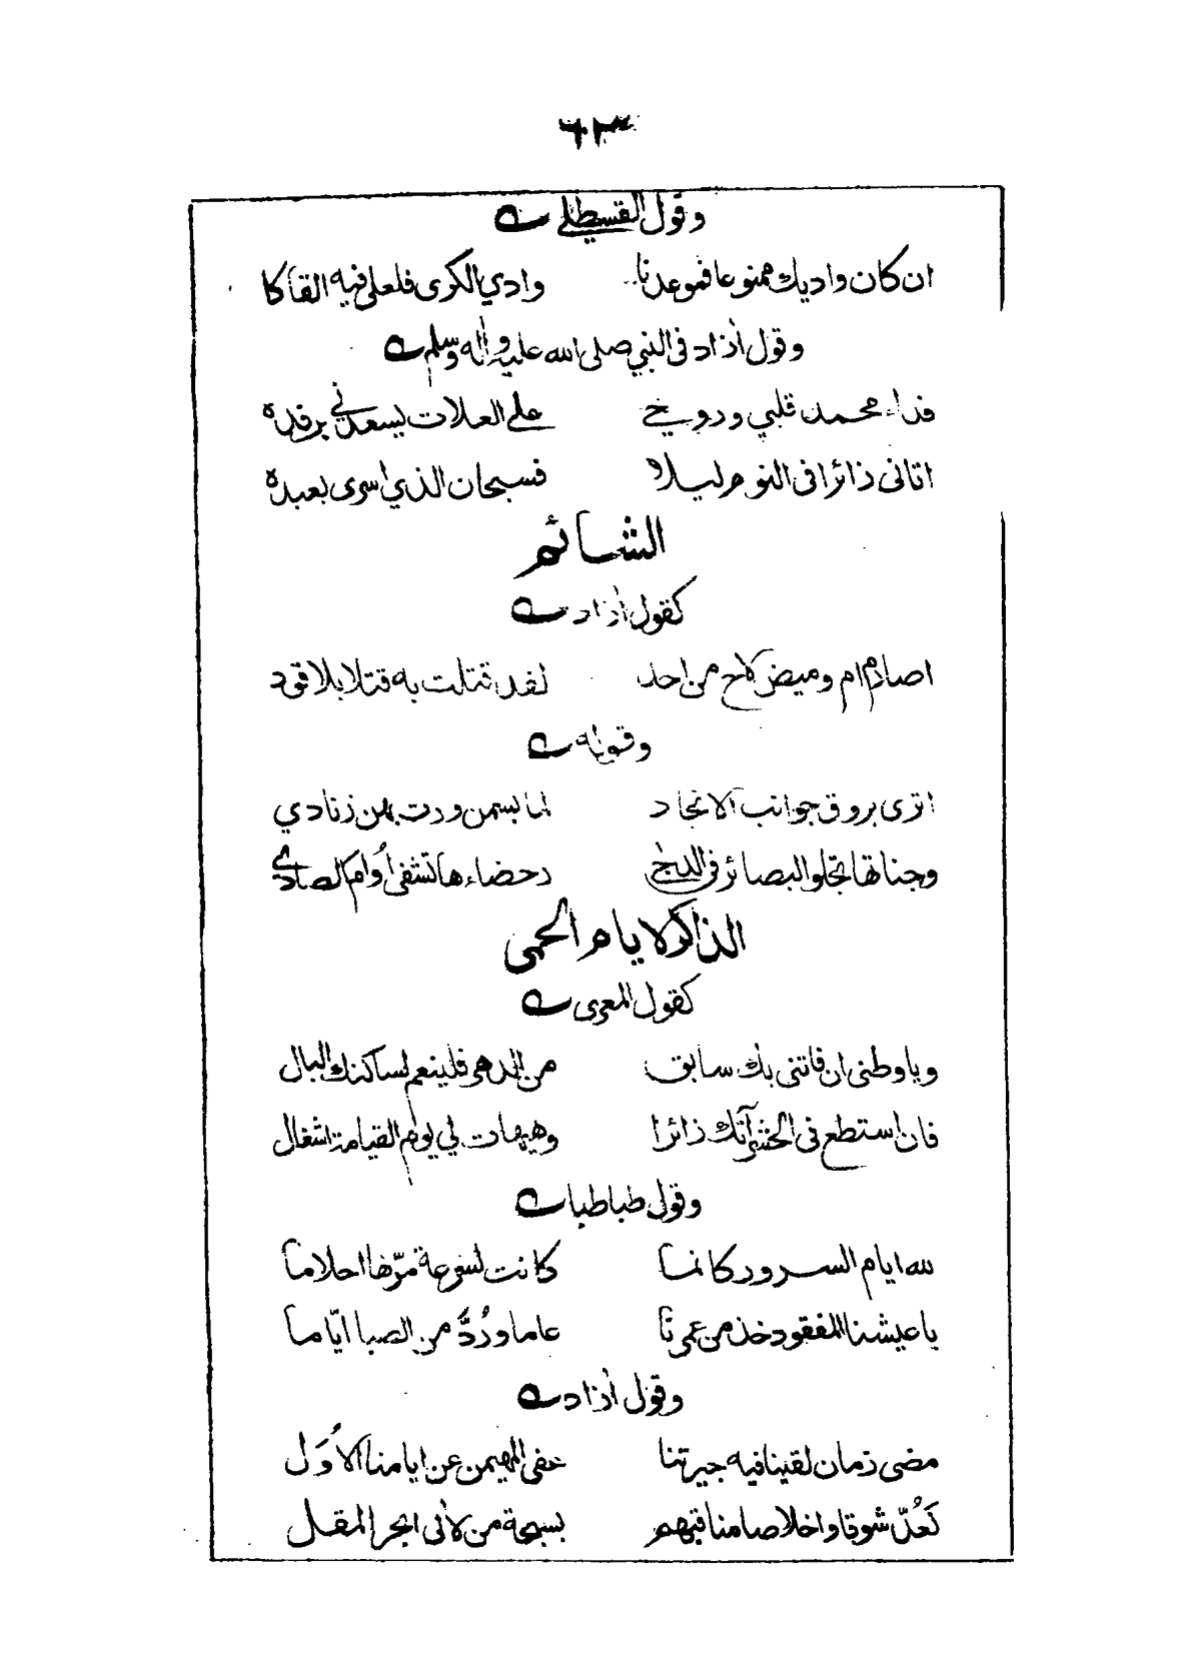 ٦٣
وقول القسطلي
ان كان واديك ممنوعا فموعدنا وادي الكرى فلعلي فيه القاكا
وقول أزاد فى النبي صلى الله عليه وأله وسلم
فداء محمد قلبي وروحي على العلات يسعدني برفده
اتانى زائرا فى النوم ليلا فسبحان الذي أسرى بعبده
الشائم
كقول أزاد
اصارم ام وميض لاح من احد لقد قتلت به قتلا بلا قود
وقوله
اترى بروق جوانب الانجاد لما بسمن ورت بهن زنادي
وجناتها تجلو البصائر فى الدجى رحضاءها تشفى أوام الصادي
الذاكر لايام الحمى
كقول المعرى
ويا وطنى ان فاتنى بك سابق من الدهر فلينعم لساكنك البال
فان استطع فى الحشر آتك زائرا وهيهات لي يوم القيامة اشغال
وقول طباطبا
لله ايام السرور كانما كانت لسرعة مرّها احلاما
يا عيشنا المفقود خذ من عمرنا عاما ورُدَّ من الصبا ايّاما
وقول أزاد
مضى زمان لقينا فيه جيرتنا عفى المهيمن عن ايامنا الأُوَل
نَعُدّ شوقا واخلاصا مناقبهم بسبحة من لألى ابحر المقل